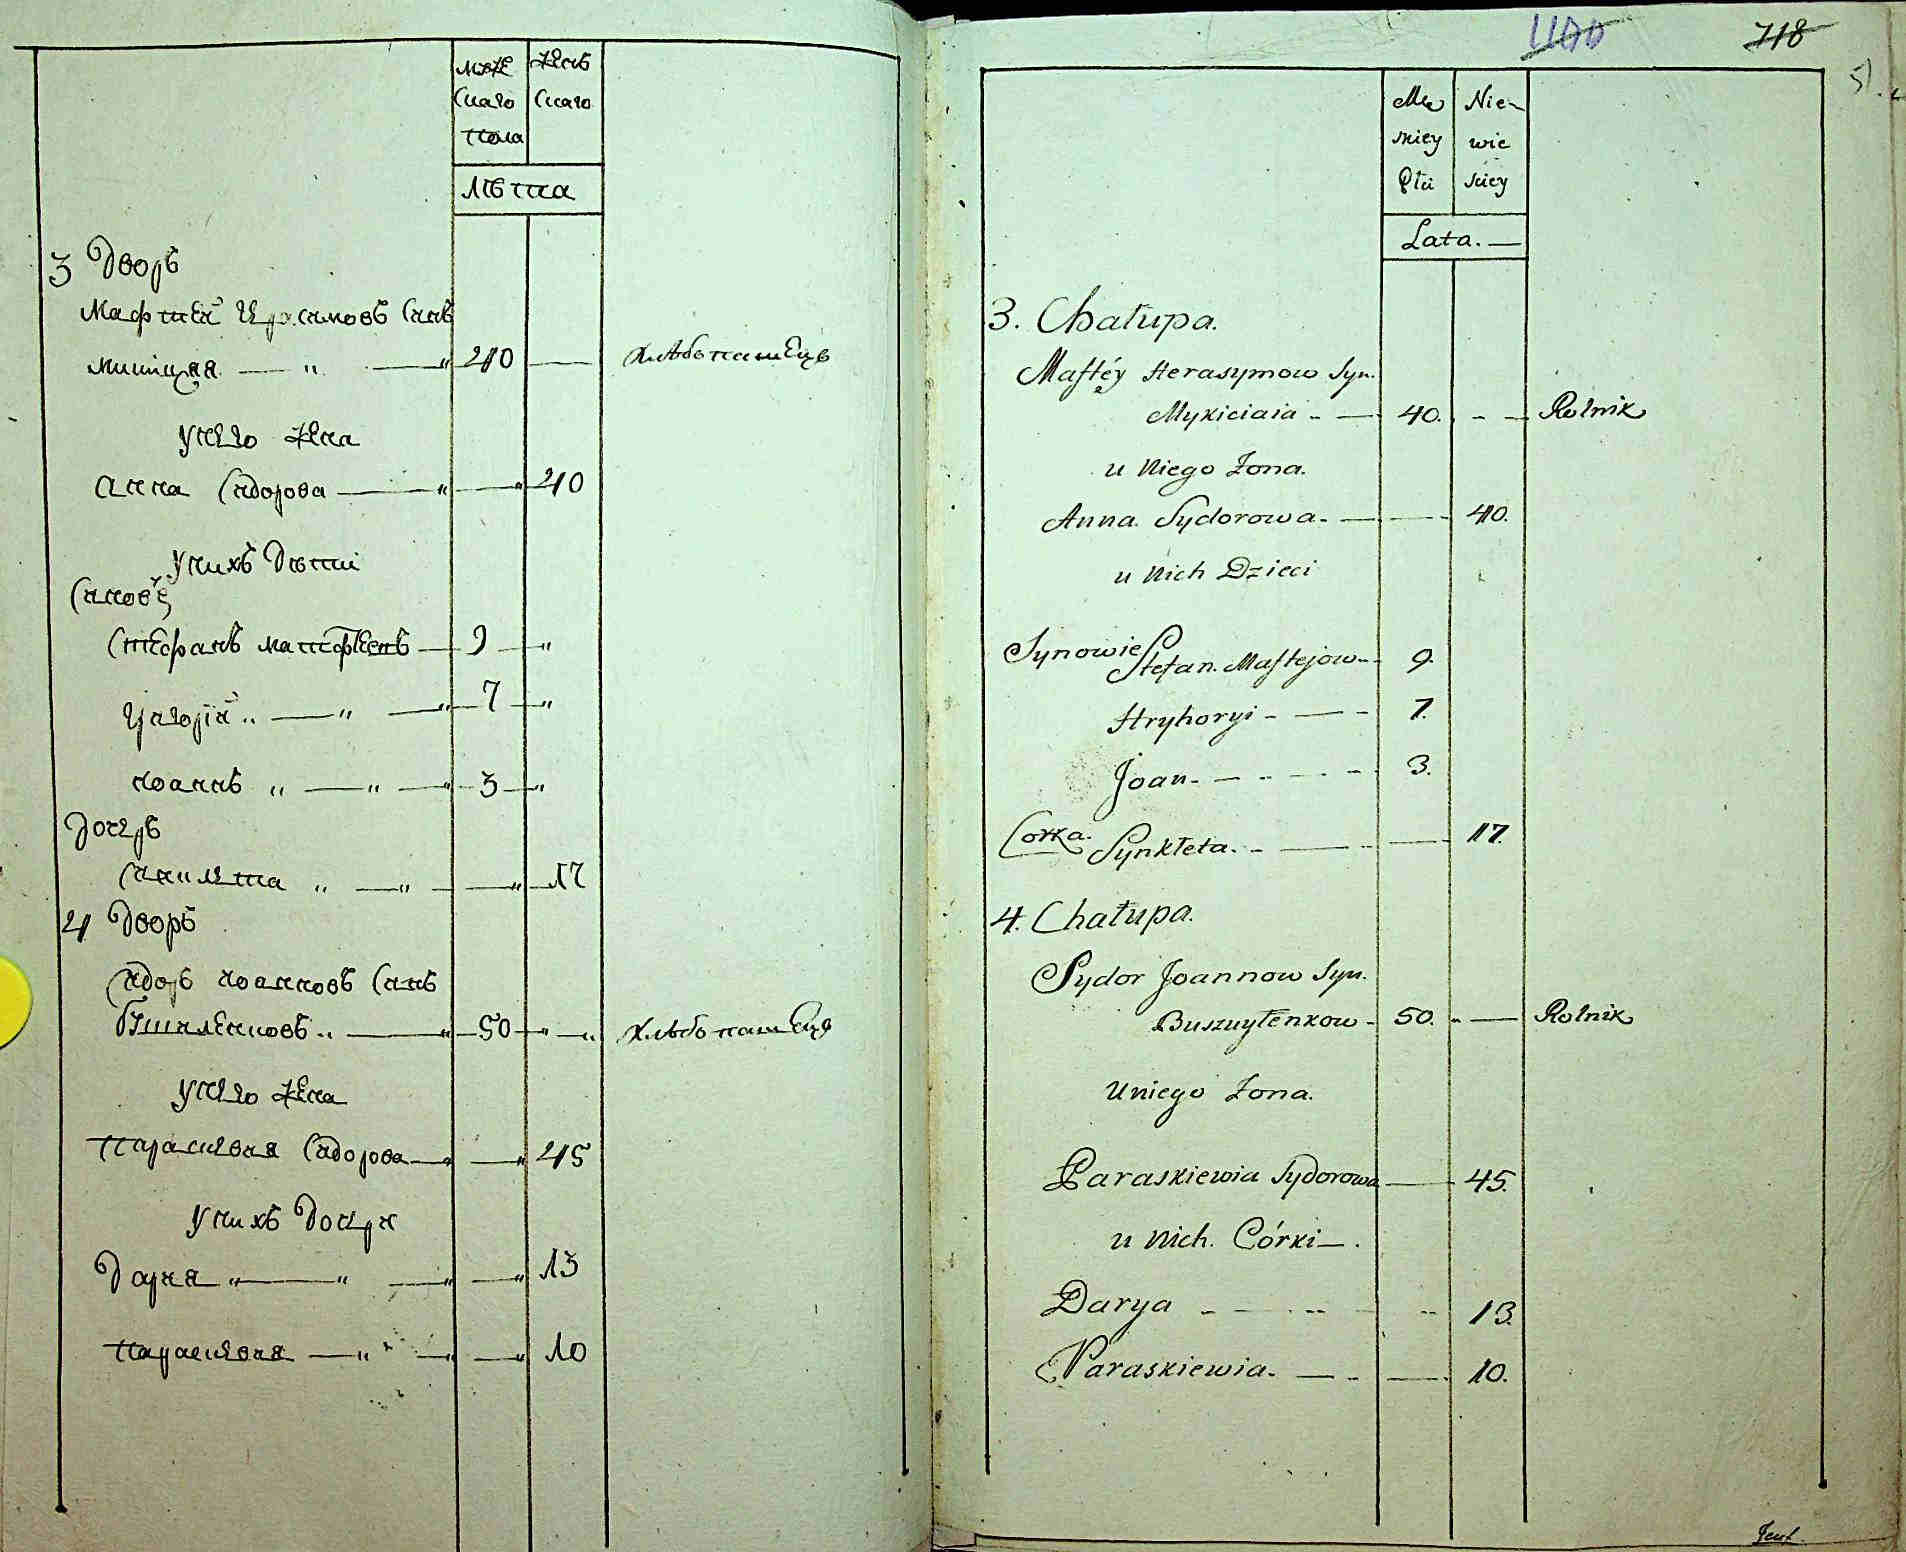 муже жень
скаго скаго
пола
Лѣтта
3 Дворъ
Мафтей Герасимовъ Синъ
Микицяя — " — " 40 — Хлѣбопашецъ
У него жена
Анна Сидорова — " — " 40
У нихъ дѣти
Синовѣ
Стефанъ Матфеевъ — 9 — "
Григорій " — " — " 7 — "
Иоаннъ " — " — " 3 — "
Дочерь
Синклета " — " — — " 17
4 Дворъ
Сидоръ Иоанновъ Синъ
Бушиленковъ " — " 50 — " — " Хлѣбопашецъ
У него жена
Параскевия Сидорова — " — " 45
У нихъ Дочери
Дария " — " — " — " 13
Параскевия — " — " — " 10
1100 718
51.
Mę Nie-
skiey wie
Płci skiey
Lata. —
3. Chałupa.
Maftéy Herasymow Syn.
Mykiciaia - — 40. - — Rolnik
u Niego Żona.
Anna Sydorowa. — — 40.
u Nich Dzieci
Synowie Stefan. Maftejow - - 9.
Hryhoryi - — - 7.
Joan - — - - - 3.
Corka. Synkłeta. - — - — 17.
4. Chałupa.
Sydor Joannow Syn.
Buszuyłenkow - 50. - — Rolnik
Uniego Żona.
Paraskiewia Sydorowa — 45.
u Nich. Córki — .
Darya - - - - - - 13.
Paraskiewia. — - — 10.